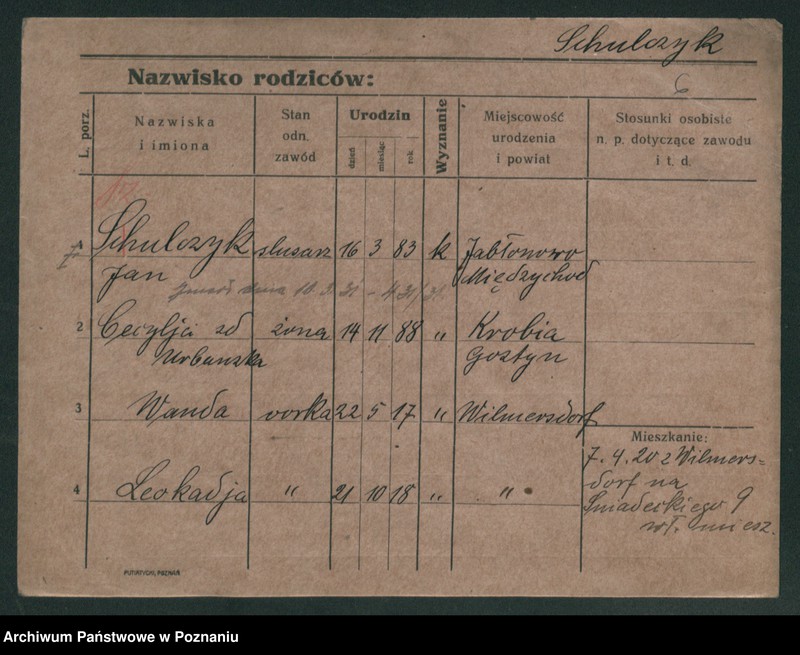 Schulczyk
Nazwisko rodziców:
6
L. porz.
Nazwiska
i imiona
Stan
odn.
zawód
Urodzin
dzień
miesiąc
rok
Wyznanie
Miejscowość
urodzenia
i powiat
Stosunki osobiste
n. p. dotyczące zawodu
i t. d.
1 Schulczyk slusarz 16 3 83 k Jabłonowo
Jan Międzychod
dnia 10.3.31 - 431/31
2 Cecylja zd żona 14 11 88 " Krobia
Urbanska Gostyn
3 Wanda corka 22 5 17 " Wilmersdorf
Mieszkanie:
7.4.20 z Wilmers=
dorf na
Sniadeckiego 9
wł. miesz.
4 Leokadja " 21 10 18 " "
PUTIATYCKI, POZNAŃ
Archiwum Państwowe w Poznaniu